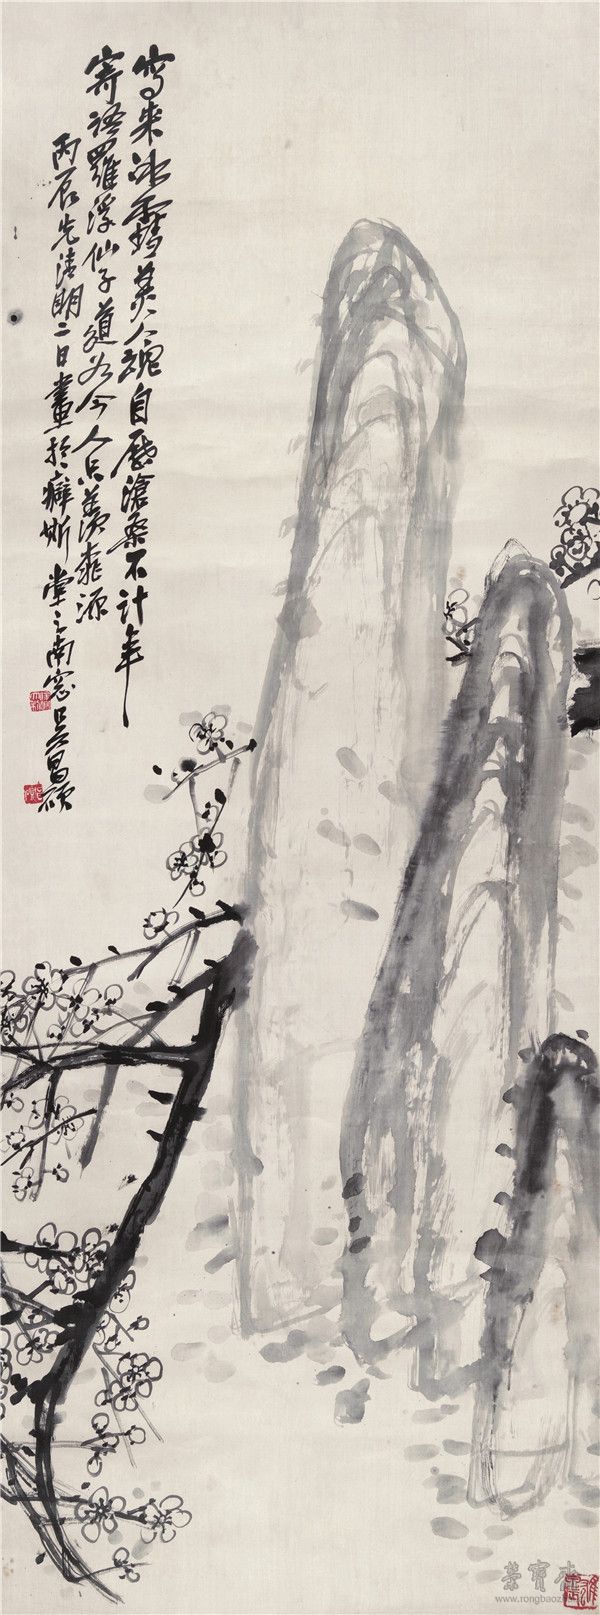 写来冰雪美人魂自历沧桑不计年
寄语罗浮仙子道如今人只羡桃源
丙辰先清明二日畫於癖斯堂之南窓吳昌碩
榮寶齋
www.rongbaozhai